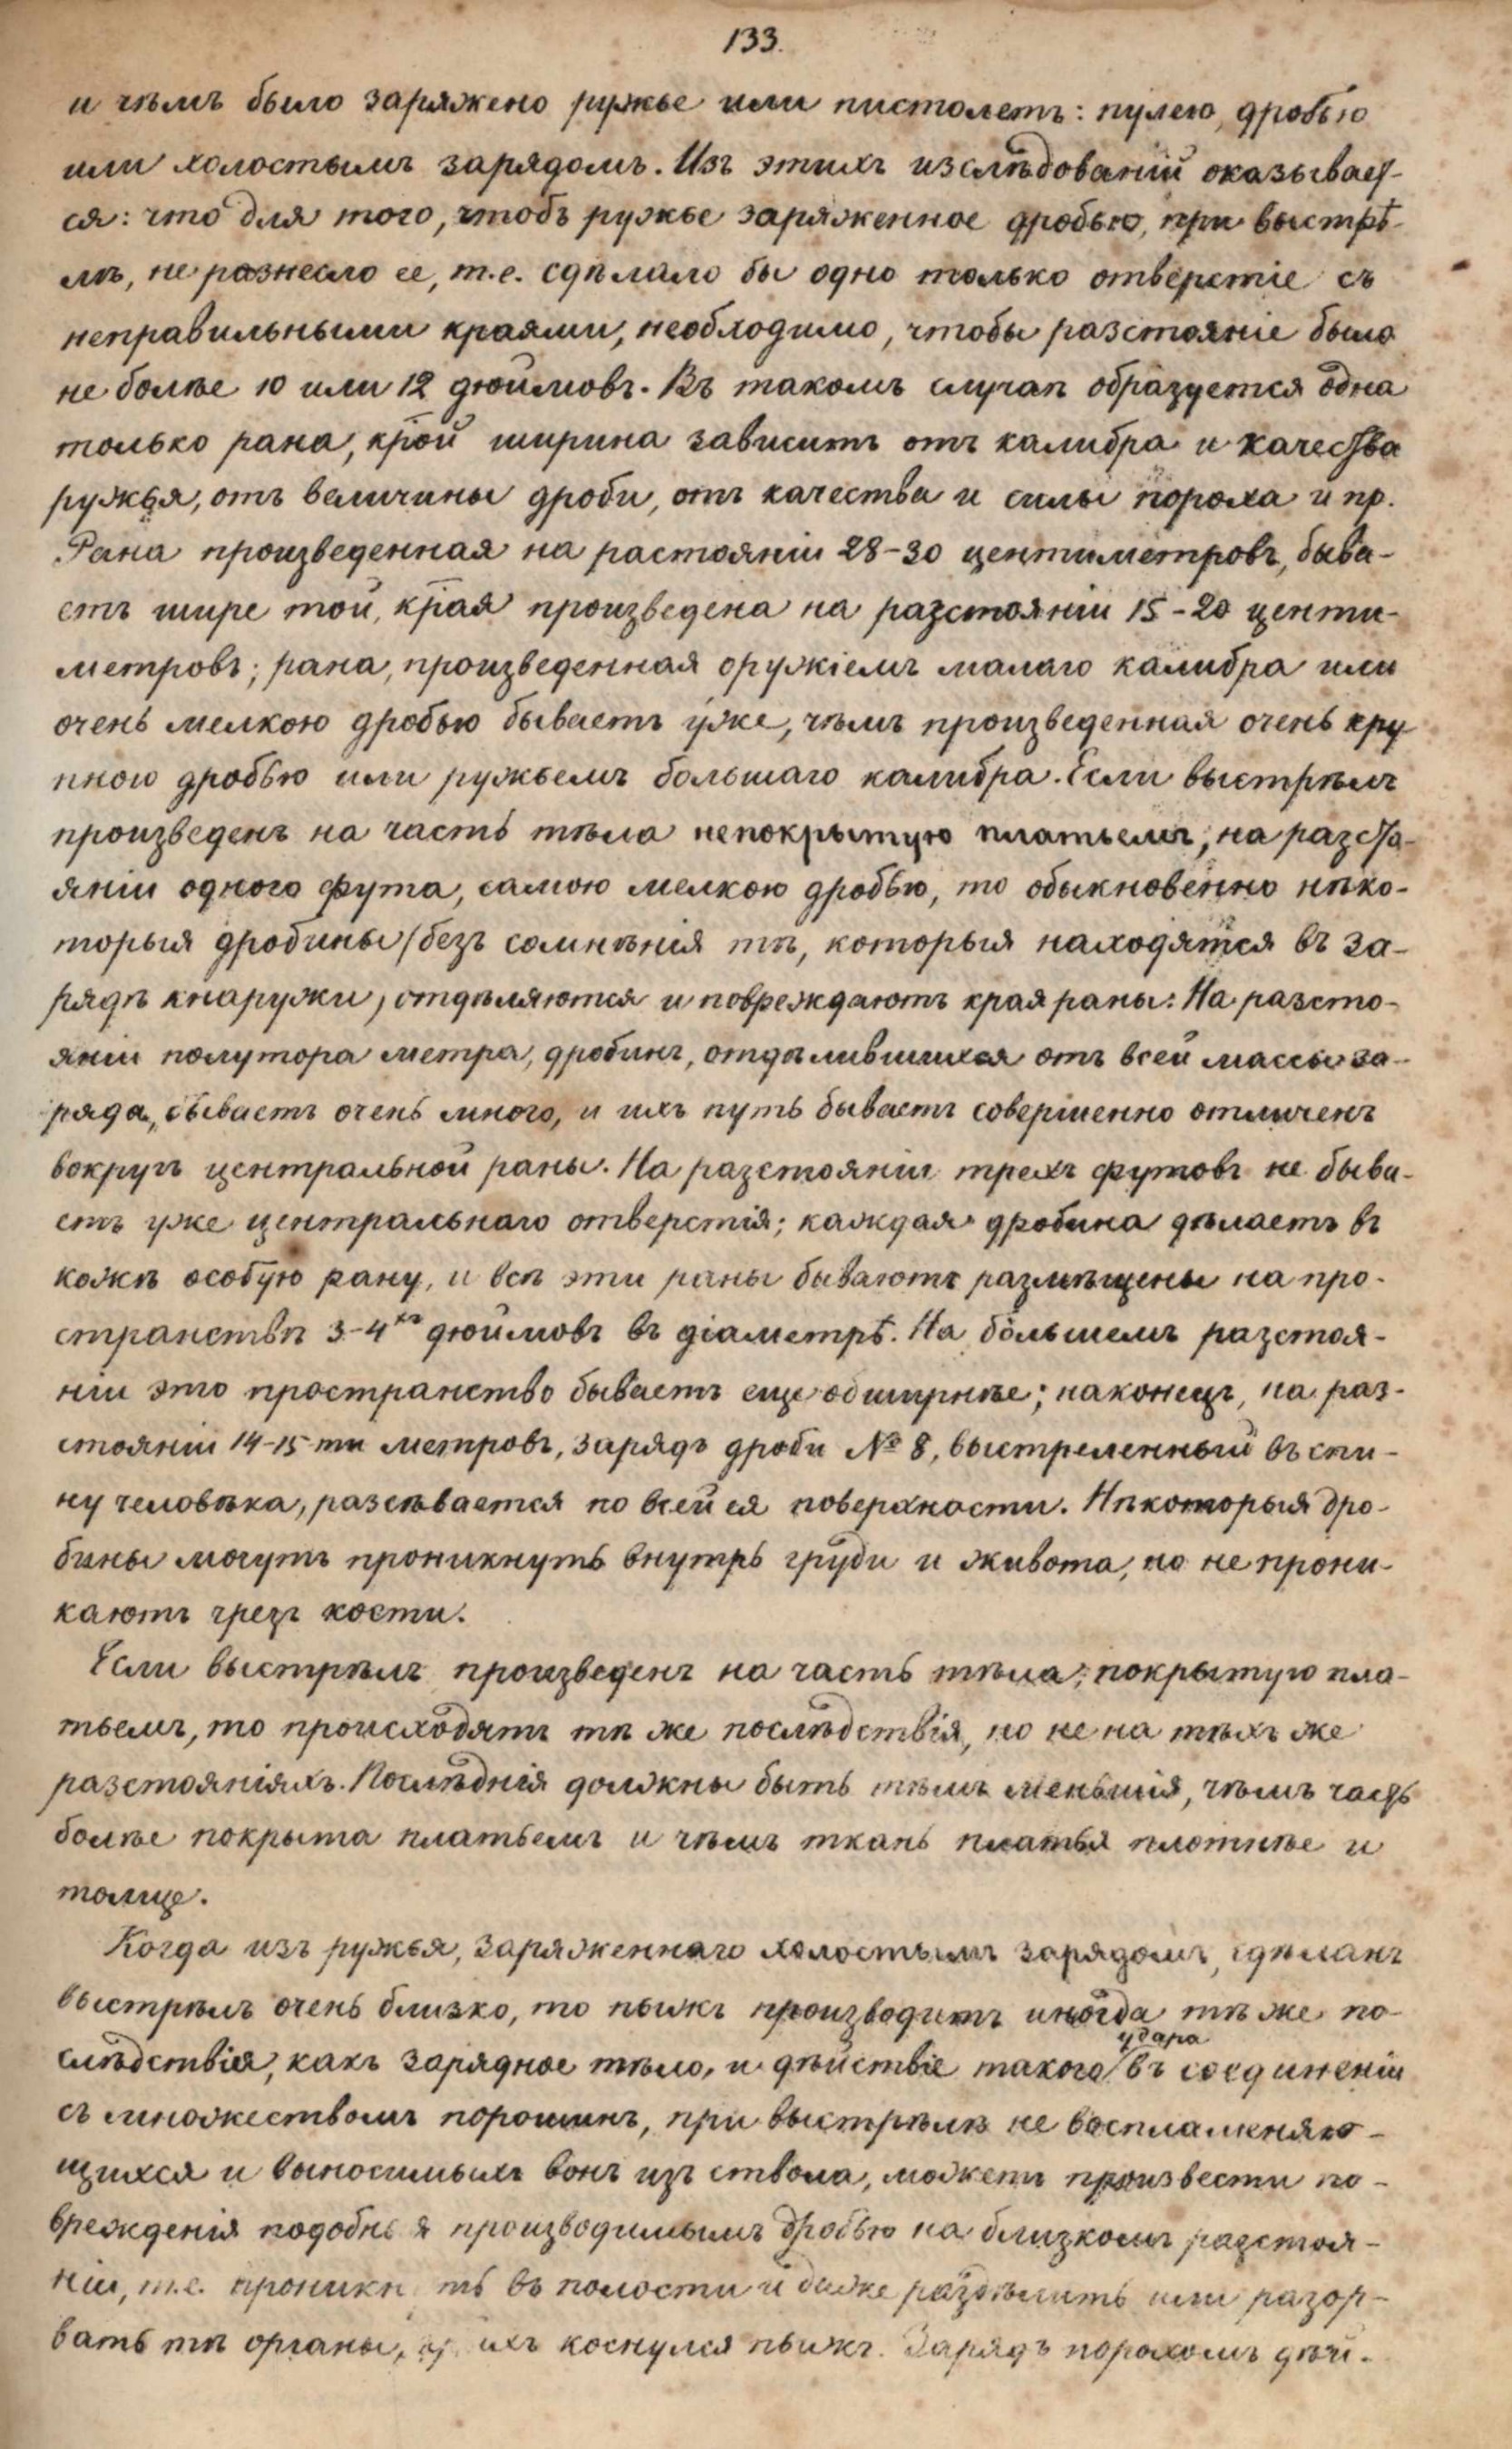 133.
и чѣмъ было заряжено ружье или пистолетъ: пулею, дробью
или холостымъ зарядомъ. Изъ этихъ изслѣдованій оказывает-
ся: что для того, чтобъ ружье заряженное дробью, при выстрѣ-
лѣ, не разнесло ее, т.е. сдѣлало бы одно только отверстіе съ
неправильными краями, необходимо, чтобы разстояніе было
не болѣе 10 или 12 дюймовъ. Въ такомъ случаѣ образуется одна
только рана, крой ширина зависитъ отъ калибра и качества
ружья, отъ величины дроби, отъ качества и силы пороха и пр.
Рана произведенная на растояніи 28-30 центиметровъ, быва-
етъ шире той, края произведена на разстояніи 15-20 центи-
метровъ; рана, произведенная оружіемъ малаго калибра или
очень мелкою дробью бываетъ уже, чѣмъ произведенная очень кру
пною дробью или ружьемъ большаго калибра. Если выстрѣлъ
произведенъ на часть тѣла непокрытую платьемъ, на разста-
яніи одного фута, самою мелкою дробью, то обыкновенно нѣко-
торыя дробины (безъ сомнѣнія тѣ, которыя находятся въ за-
рядѣ кнаружи) отдѣляются и повреждаютъ края раны. На разсто-
яніи полутора метра, дробинъ, отдѣлившихся отъ всей массы за-
ряда, бываетъ очень много, и ихъ путь бываетъ совершенно отличенъ
вокругъ центральной раны. На разстояніи трехъ футовъ не быва-
етъ уже центральнаго отверстія; каждая дробина дѣлаетъ въ
кожѣ особую рану, и всѣ эти раны бываютъ размѣщены на про-
странствѣ 3-4хъ дюймовъ въ діаметрѣ. На большемъ разстоя-
ніи это пространство бываетъ еще обширнѣе; наконецъ, на раз-
стояніи 14-15-ти метровъ, зарядъ дроби № 8, выстреленный въ спи-
ну человѣка, разсѣвается по всей ея поверхности. Нѣкоторыя дро-
бины могутъ проникнуть внутрь груди и живота, но не прони-
каютъ чрезъ кости.
Если выстрѣлъ произведенъ на часть тѣла, покрытую пла-
тьемъ, то происходятъ тѣ же послѣдствія, но не на тѣхъ же
разстояніяхъ. Послѣднія должны быть тѣмъ меньшія, чѣмъ часть
болѣе покрыта платьемъ и чѣмъ ткань платья плотнѣе и
толще.
Когда изъ ружья, заряженнаго холостымъ зарядомъ, сдѣланъ
выстрѣлъ очень близко, то пыжъ производитъ иногда тѣ же по-
слѣдствія, какъ зарядное тѣло, и дѣйствіе такого удара въ соединеніи
съ множествомъ порошинъ, при выстрѣлѣ не воспламеняю-
щихся и выносимыхъ вонъ изъ ствола, можетъ произвести по-
врежденія подобныя производимымъ дробью на близкомъ разстоя-
ніи, т.е. проникн ть въ полости и даже раздѣлить или разор-
вать тѣ органы, ихъ коснулся пыжъ. Зарядъ порохомъ дѣй-